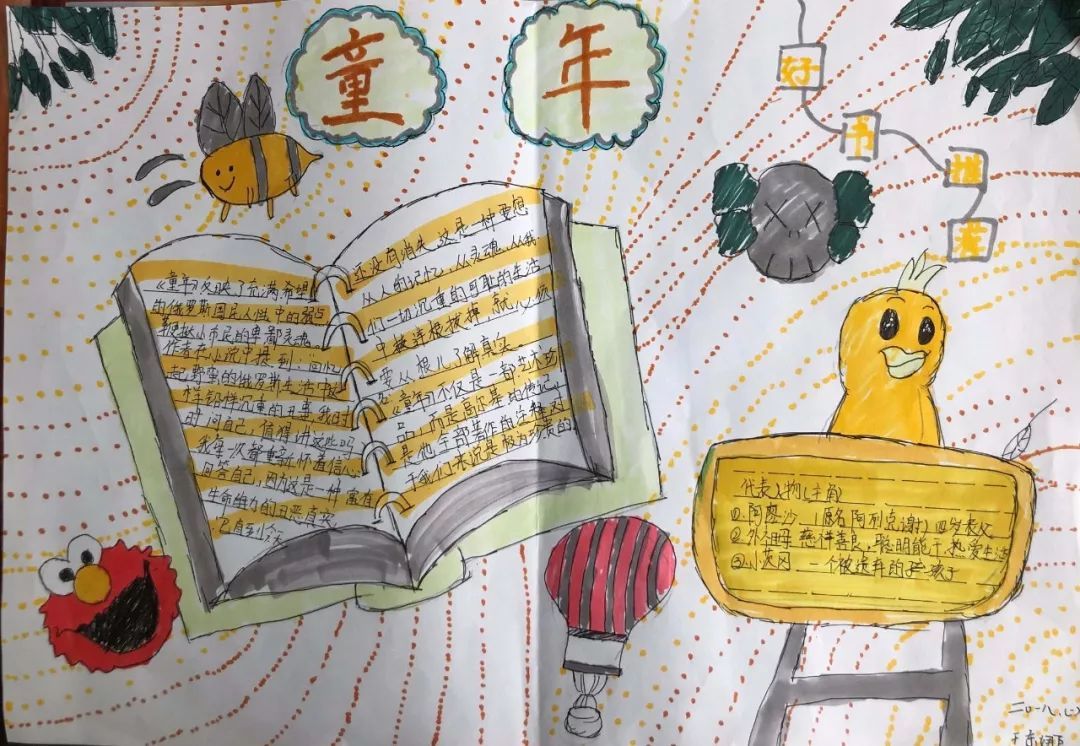 童年
好书推荐
《童年》反映了充满希望
的俄罗斯国民人性中的强与
鞭挞小市民的卑鄙灵魂。
作者在小说中提到：回忆
起野蛮的俄罗斯生活中这
样铅样沉重的丑事，我时
时问自己，值得讲这些吗
我每一次都重新怀着信心
回答自己，因为这是一种富有
生命的力的丑恶真实
它直到今
还没有消失，这是一种要想
从人的记忆，从灵魂，从我
们一切沉重的可耻的生活
中连根拔掉就
要从根儿了解真实。
《童年》不仅是一部艺术
品，而是高尔基的传记，
是他全部著作的注释，对
于我们来说是极为珍贵的
代表人物(主角)
①阿廖沙（原名阿列克谢）四岁丧父
②外祖母 慈祥善良，聪明能干，热爱生活
③小茨冈 一个被遗弃的孩子
二〇一八